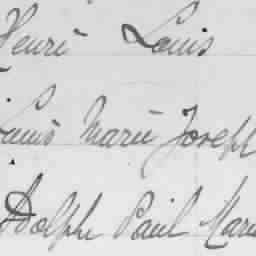 Henri Louis
Louis Marie Joseph
Adolphe Paul Marie